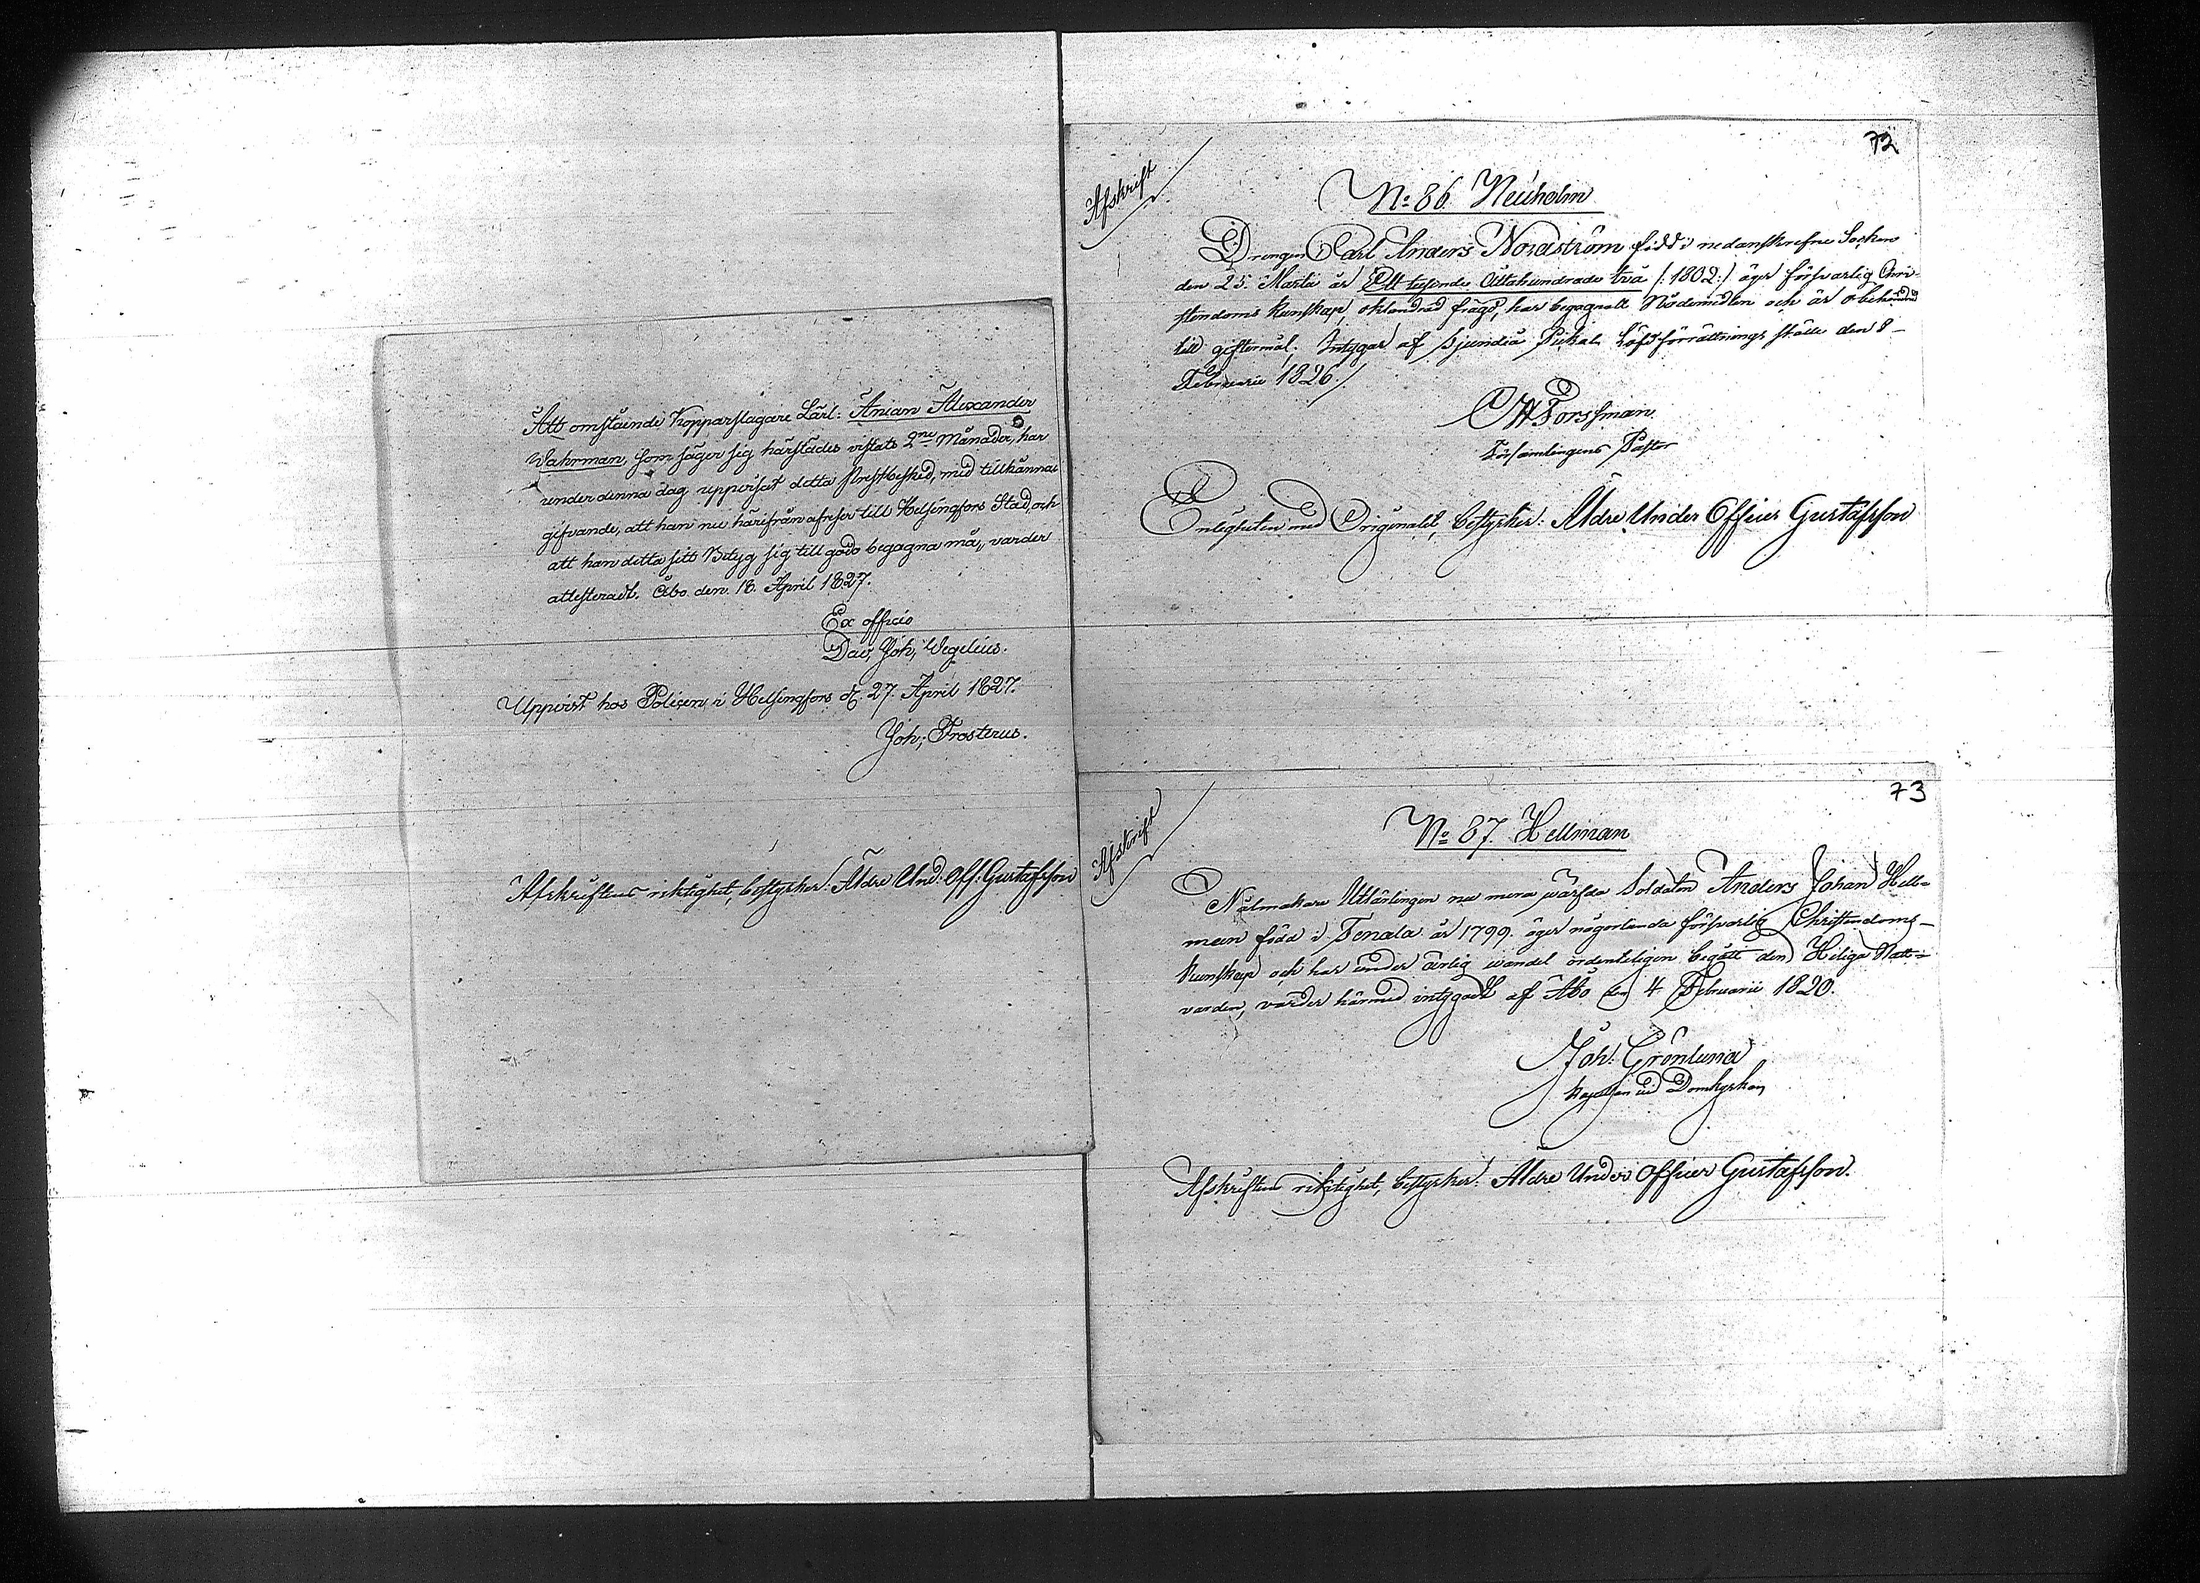 Att omstående Kopparslagare Lärl: Anian Alexander
Wahrman, som säger sig härstädes vistats 2ne Månader, har
under denna dag uppvisat detta Prestbesked, med tillkänna
gifvande, att han nu härifrån afreser till Helsingfors Stad, och
att han detta sitt Betyg sig till godo begagna må, varder
attesteradt. Åbo den 18. April 1827.
Ex officio
Dav, Joh, Wegelius.
Uppvist hos Policen i Helsingfors d. 27. April 1827.
Joh; Frosterus.
Afskriftens riktighet, bestyrker: Äldre Und: Off: Gustafsson
72
Afskrift
No 86. Neuholm
Drengen Carl Anders Nordström född i nedanskrefne Socken
den 25 Martii år Ett tusende Åttahundrade två /:1802:/ äger försvarlig Chri-
stendoms kunskap, oklandrad frägd, har begagnat Nådemedlen och är obehindrad
till giftermål; Intygas af Sjundeå Pickala Låfsförrättnings ställe den 8
Februarii 1826./
CH Forssman
Församlingens Pastor
Enligheten med Originalet, bestyrker: Äldre Under Officer Gustafsson
73
Afskrift
No 87. Hellman
Nålmakare Utlärlingen nu mera värfda Soldaten Anders Johan Hell=
man född i Tenala år 1799. äger någorlunda försvarlig Christendoms-
kunskap och har under ärlig wandel ordenteligen begått den Heliga Natt=
varden, varder härmed intygadt af Åbo den 4 Februarii 1820.
Joh: Grönlund
Kapellan vid Domkyrkan
Afskriftens riktighet, bestyrker: Äldre Under Officer Gustafsson.